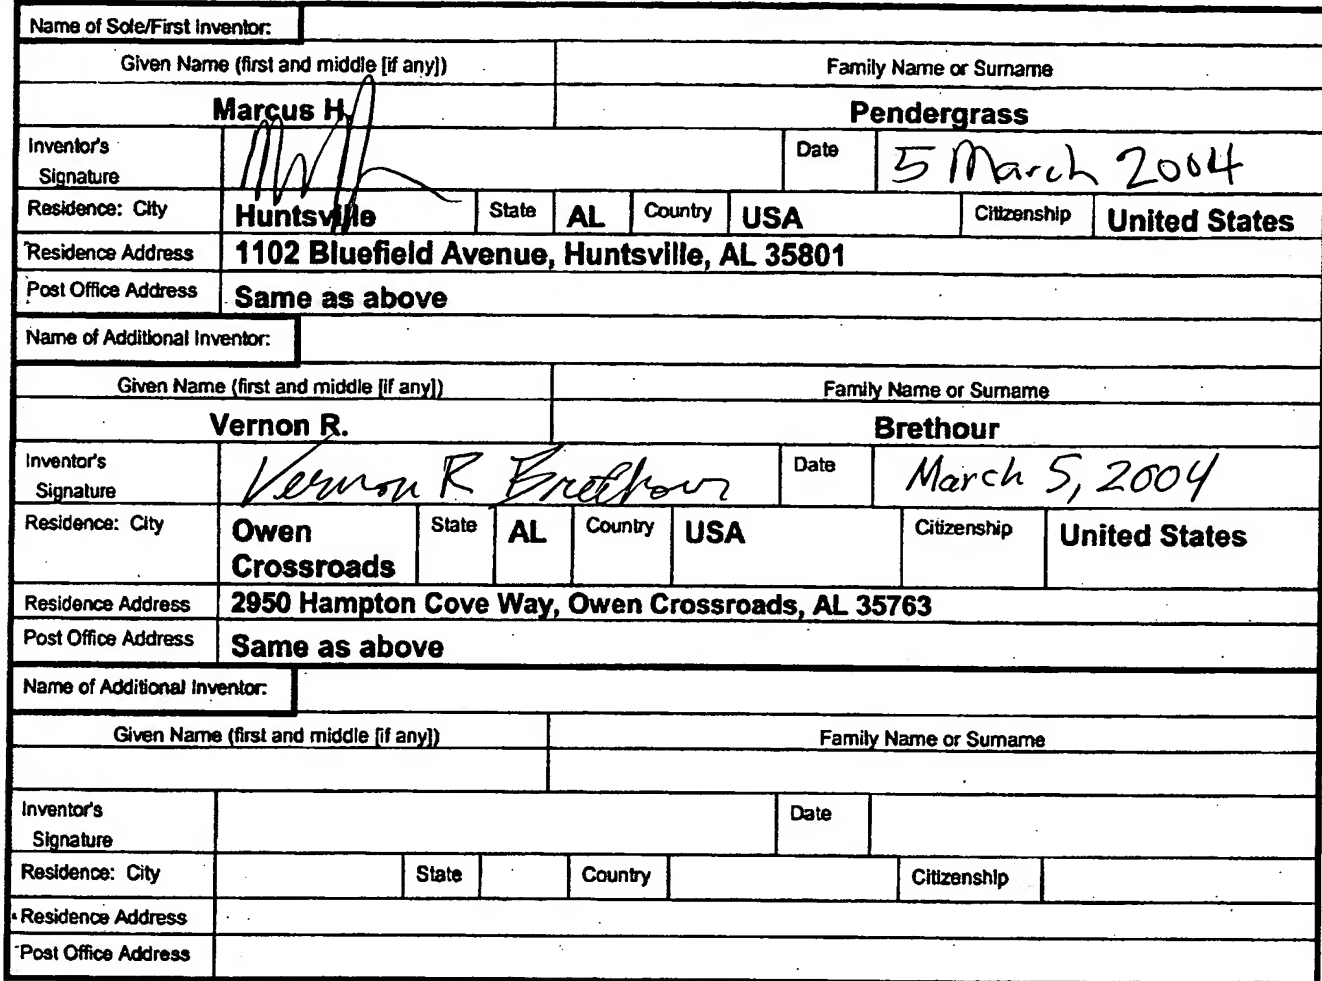 Name of Sole/First Inventor:
Given Name (first and middle [if any]) Family Name or Surname
Marcus H. Pendergrass
Inventor's Signature Date 5 March 2004
Residence: City Huntsville State AL Country USA Citizenship United States
Residence Address 1102 Bluefield Avenue, Huntsville, AL 35801
Post Office Address Same as above
Name of Additional Inventor:
Given Name (first and middle [if any]) Family Name or Surname
Vernon R. Brethour
Inventor's Signature Vernon R Brethour Date March 5, 2004
Residence: City Owen Crossroads State AL Country USA Citizenship United States
Residence Address 2950 Hampton Cove Way, Owen Crossroads, AL 35763
Post Office Address Same as above
Name of Additional Inventor:
Given Name (first and middle [if any]) Family Name or Surname
Inventor's Signature Date
Residence: City State Country Citizenship
Residence Address
Post Office Address